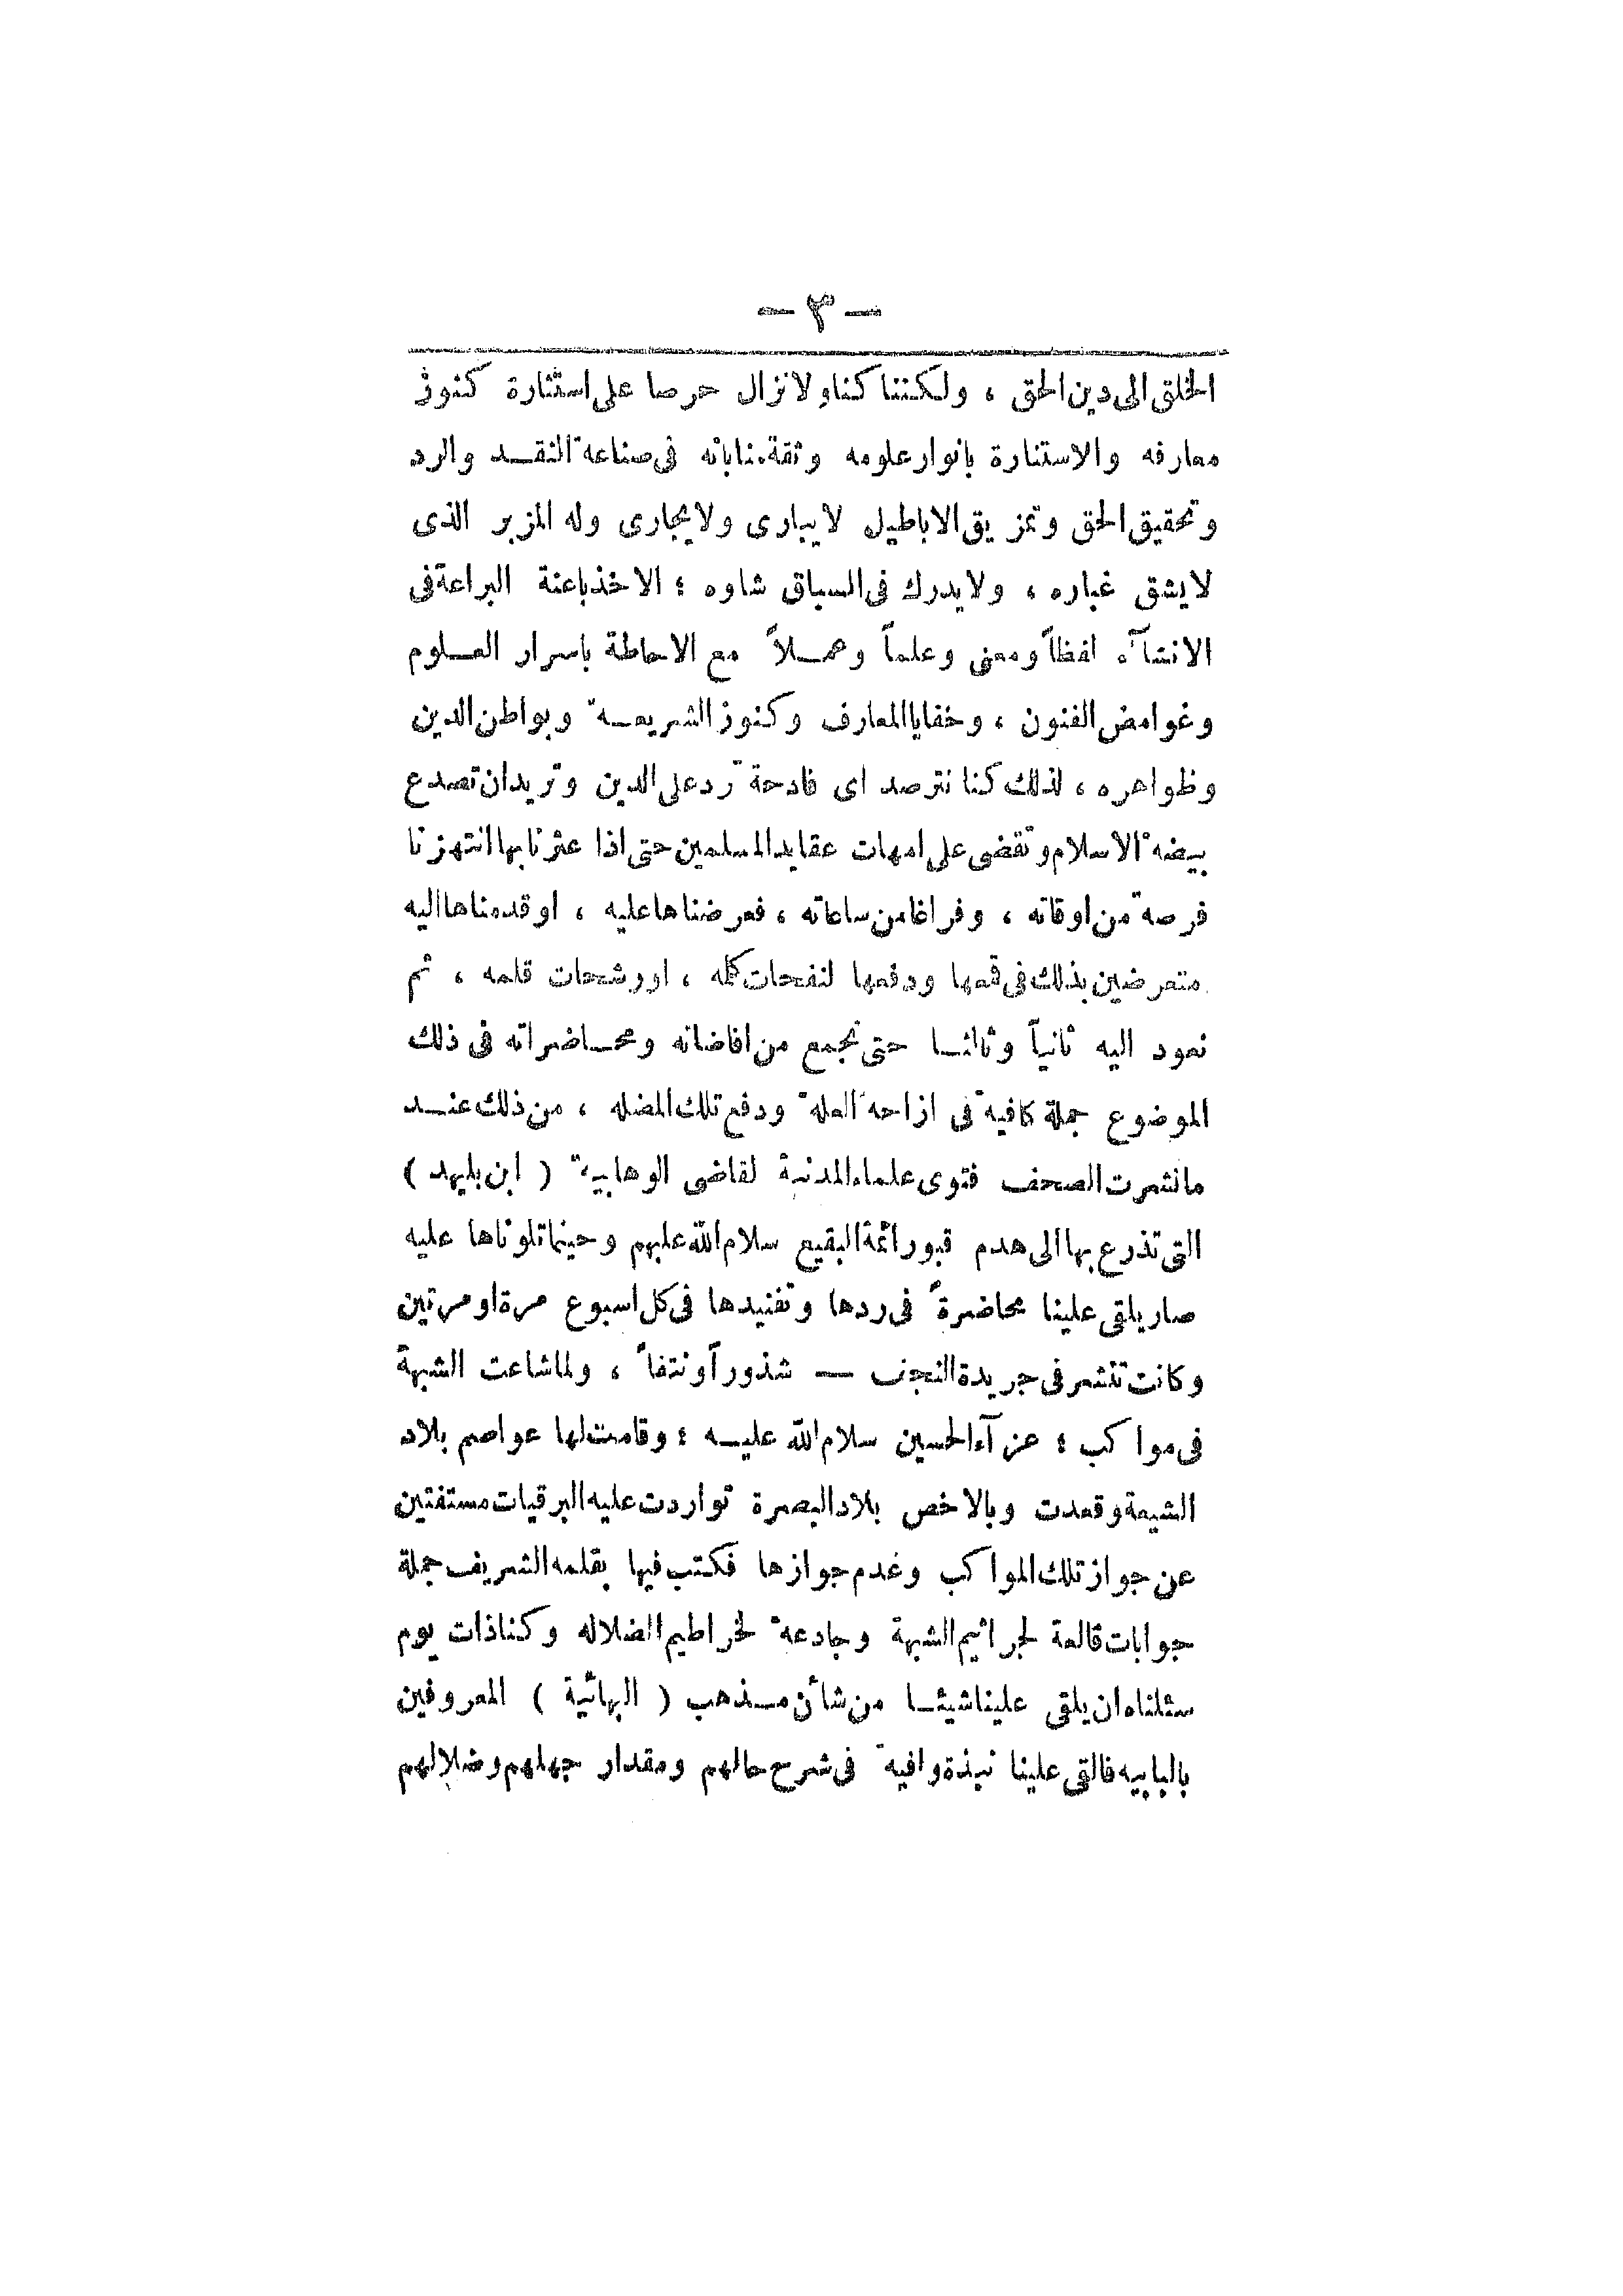 — ٣ —
الخلق الى دين الحق ، ولكننا كنا ولا نزال حرصا على استثارة كنوز
معارفه والاستنارة بانوار علومه وثقة منا بانه فى صناعة النقـد والرد
وتحقيق الحق وتمزيق الاباطيل لا يبارى ولا يجارى وله المزبر الذى
لا يشق غباره ، ولا يدرك فى السباق شاوه ؛ الاخذ باعنة البراعة فى
الانشآء لفظاً ومعنى وعلماً وعمـلاً مع الاحاطة باسرار العـلوم
وغوامض الفنون ، وخفايا المعارف وكنوز الشريعـة وبواطن الدين
وظواهره ، لذلك كنا نترصد اى فادحة ترد على الدين وتريد ان تصدع
بيضة الاسلام وتقضى على امهات عقايد المسلمين حتى اذا عثرنا بها انتهزنا
فرصة من اوقاته ، وفراغا من ساعاته ، فعرضناها عليه ، او قدمناها اليه
متعرضين بذلك فى قمعها ودفعها لنفحات كلمه ، او رشحات قلمه ، ثم
نعود اليه ثانياً وثالثـا حتى نجمع من افاضاته ومحـاضراته فى ذلك
الموضوع جملة كافية فى ازاحة العلة ودفع تلك المضله ، من ذلك عنـد
ما نشرت الصحف فتوى علماء المدنية لقاضى الوهابية ( ابن بليهد )
التى تذرع بها الى هدم قبور أئمة البقيع سلام الله عليهم وحينما تلوناها عليه
صار يلقى علينا محاضرةً فى ردها وتفنيدها فى كل اسبوع مرة او مرتين
وكانت تنشر فى جريدة النجف — شذوراً ونتفاً ، ولما شاعت الشبهة
فى مواكب ؛ عزآء الحسين سلام الله عليـه ؛ وقامت لها عواصم بلاد
الشيعة وقعدت وبالاخص بلاد البصرة تواردت عليه البرقيات مستفتين
عن جواز تلك المواكب وعدم جوازها فكتب فيها بقلمه الشريف جملة
جوابات قالعة لجراثيم الشبهة وجادعة لخراطيم الضلاله وكنا ذات يوم
سئلناه ان يلقى علينا شيئـا من شأن مـذهب ( البهائية ) المعروفين
بالبابيه فالقى علينا نبذة وافية فى شرح حالهم ومقدار جهلهم وضلالهم